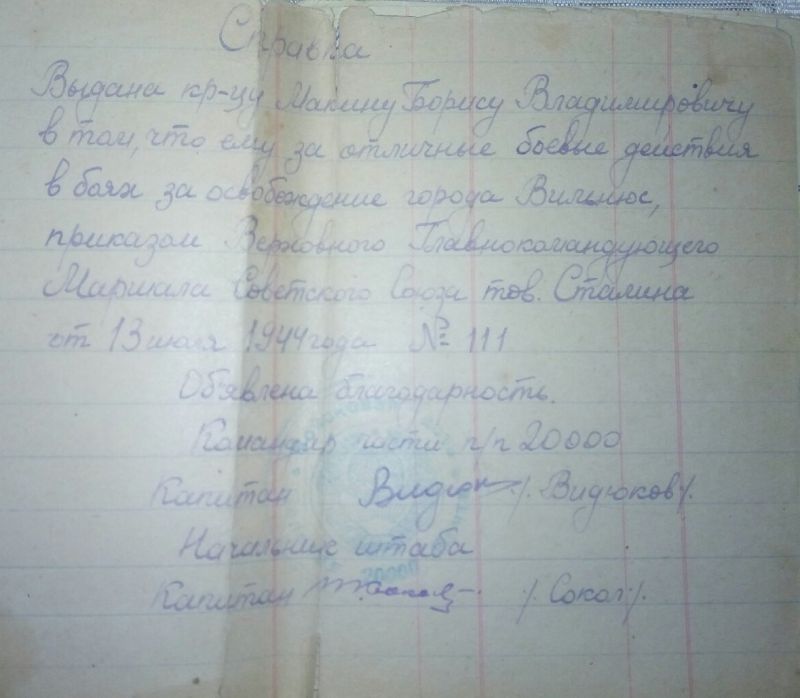 Справка
Выдана кр-цу Макину Борису Владимировичу
в том, что ему за отличные боевые действия
в боях за освобождение города Вильнюс,
приказом Верховного Главнокомандующего
Маршала Советского Союза тов. Сталина
от 13 июля 1944 года № 111
Объявлена благодарность.
Командир части п/п 20000
Капитан /. Видюков /.
Начальник штаба
Капитан /. Сокол /.